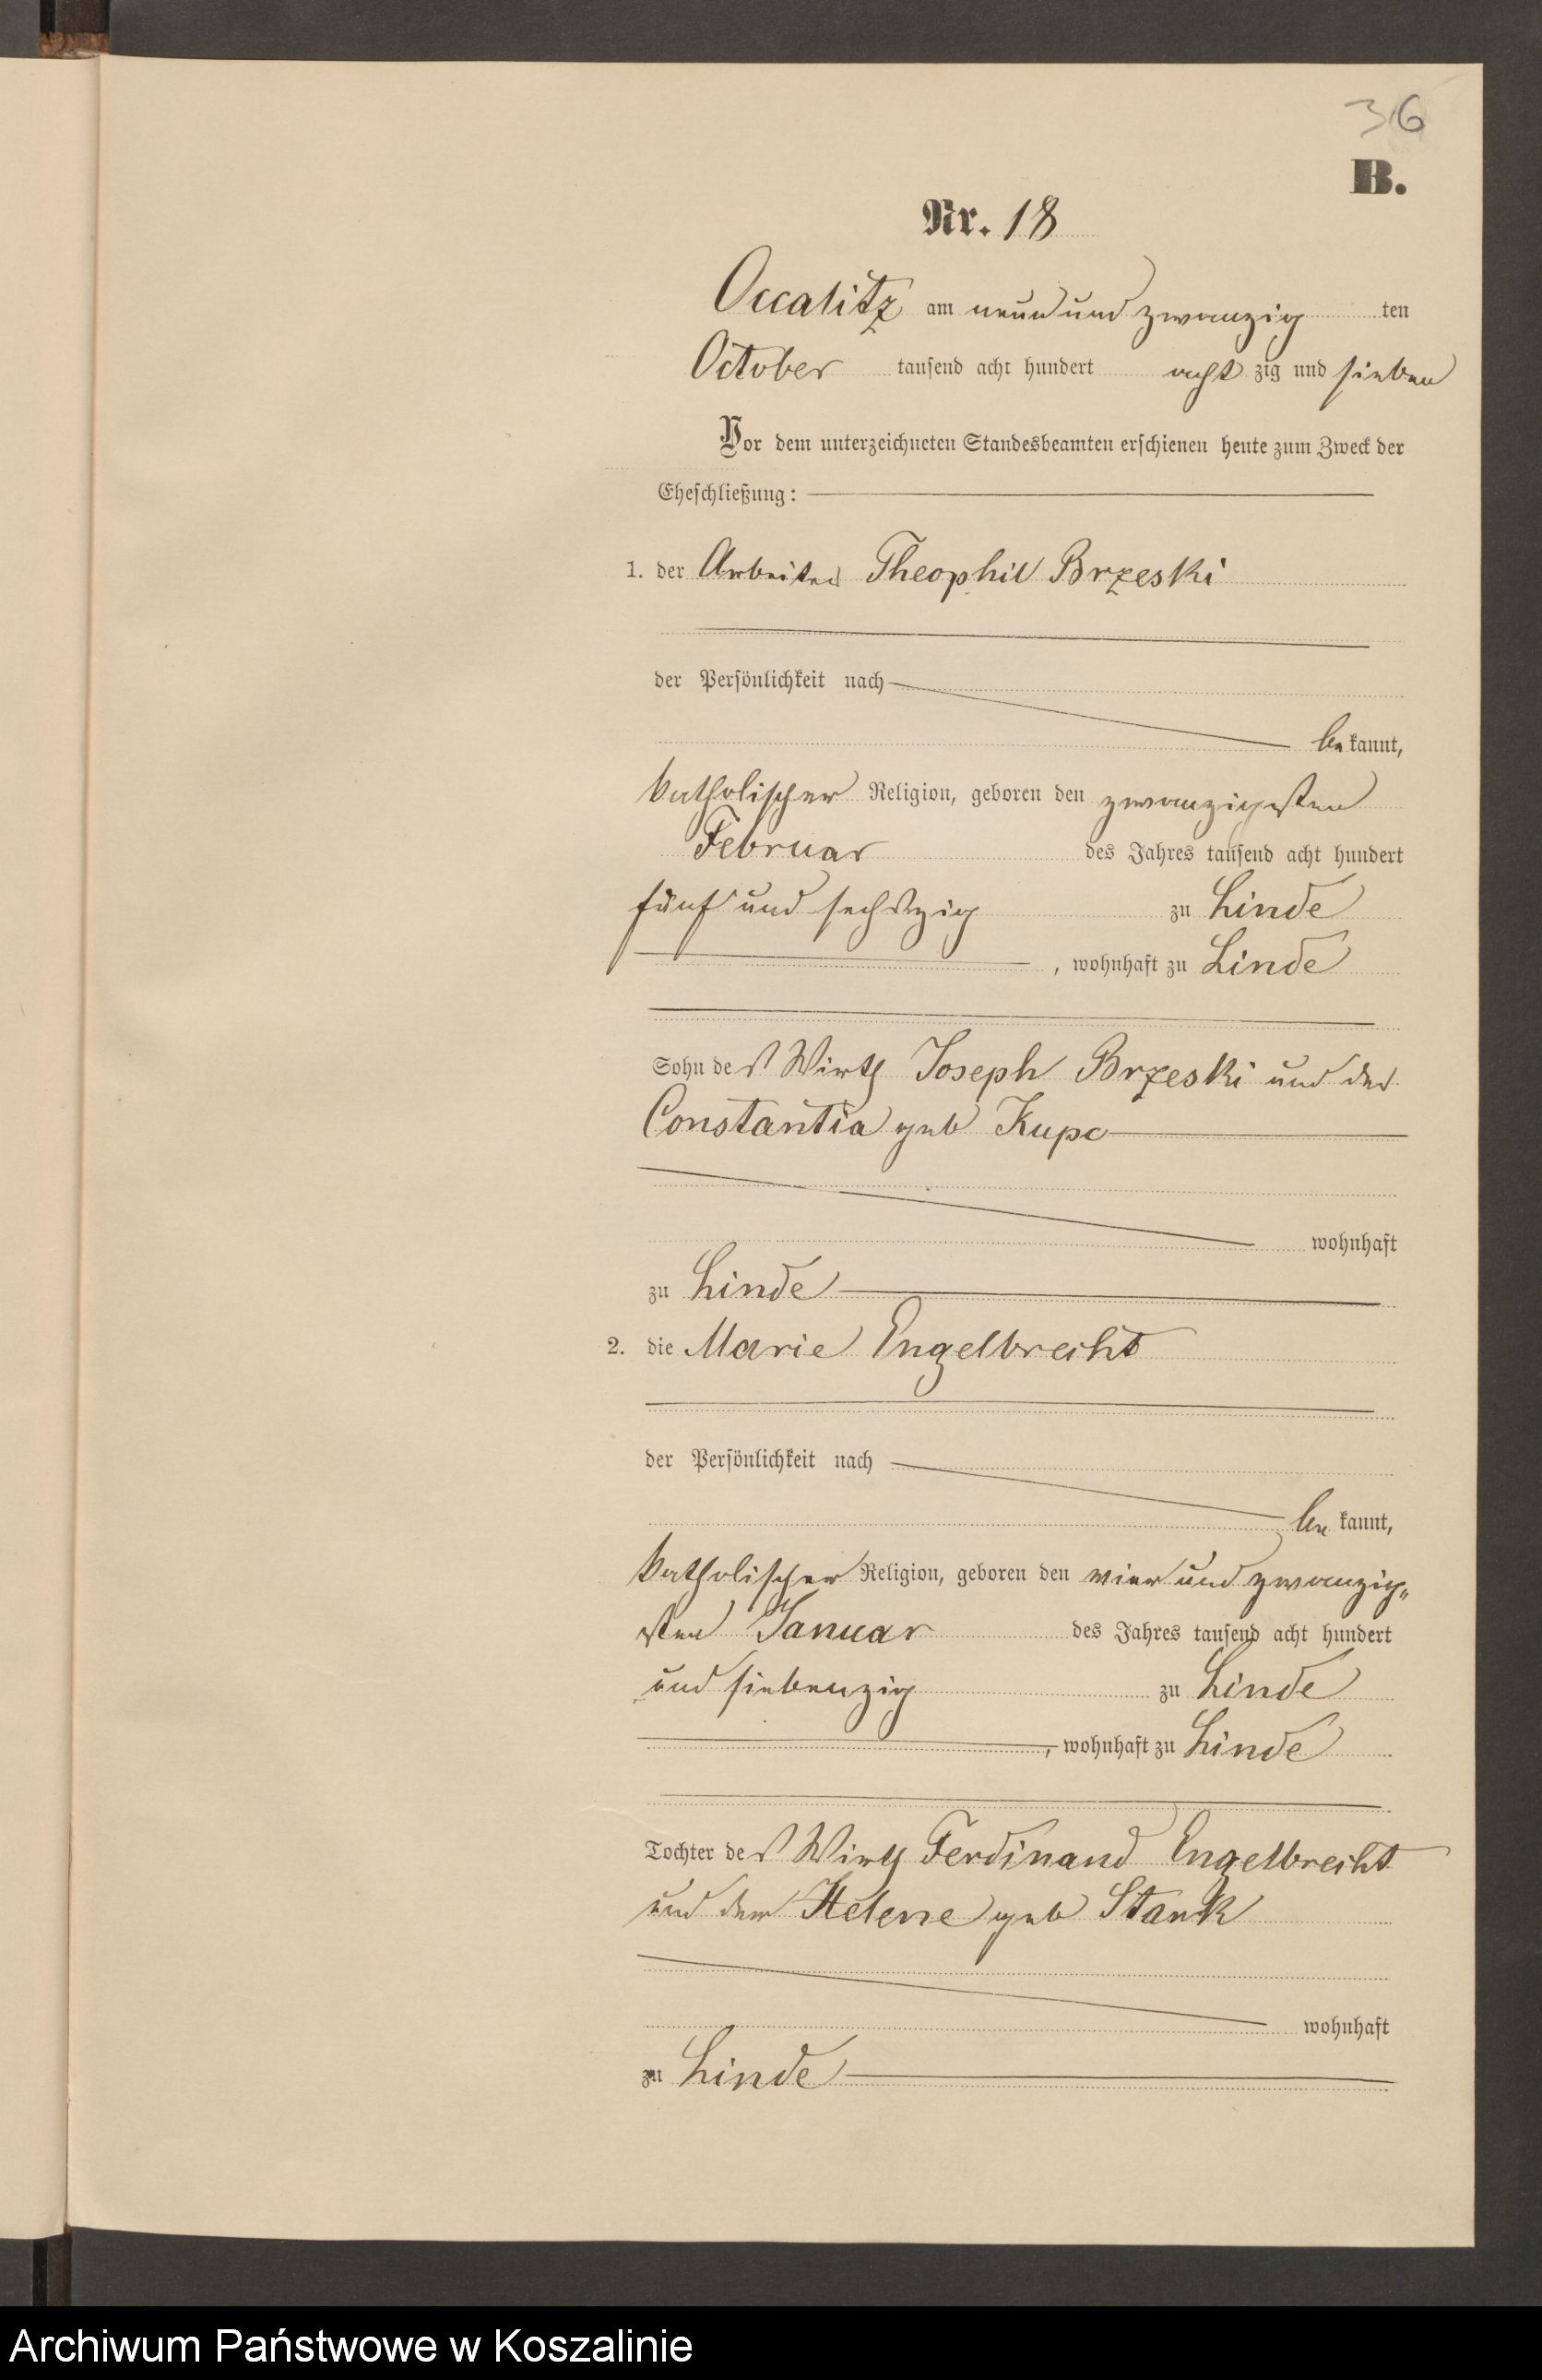 36
B.
Nr. 18
Occalitz am neun und zwanzig ten
October tausend acht hundert acht zig und sieben
Vor dem unterzeichneten Standesbeamten erschienen heute zum Zweck der
Eheschließung:
1. der Arbeiter Theophil Brzeski
der Persönlichkeit nach
be kannt,
katholischer Religion, geboren den zwanzigsten
Februar des Jahres tausend acht hundert
fünf und sechszig zu Linde
, wohnhaft zu Linde
Sohn des Wirth Joseph Brzeski und der
Constantia geb Kupc
wohnhaft
zu Linde
2. die Marie Engelbrecht
der Persönlichkeit nach
be kannt,
katholischer Religion, geboren den vier und zwanzig„
sten Januar des Jahres tausend acht hundert
und siebenzig zu Linde
, wohnhaft zu Linde
Tochter des Wirth Ferdinand Engelbrecht
und der Helene geb Stank
wohnhaft
zu Linde
Archiwum Państwowe w Koszalinie